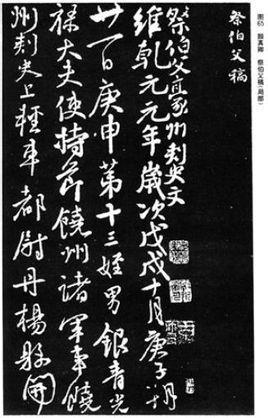 图65 颜真卿 祭伯父稿(局部)
祭伯父稿
祭伯父豪州刺史文
维乾元元年岁次戊戌十月庚子朔
廿一日庚申第十三姪男银青光
禄大夫使持节饶州诸军事饶
州刺史上轻车都尉丹杨县开